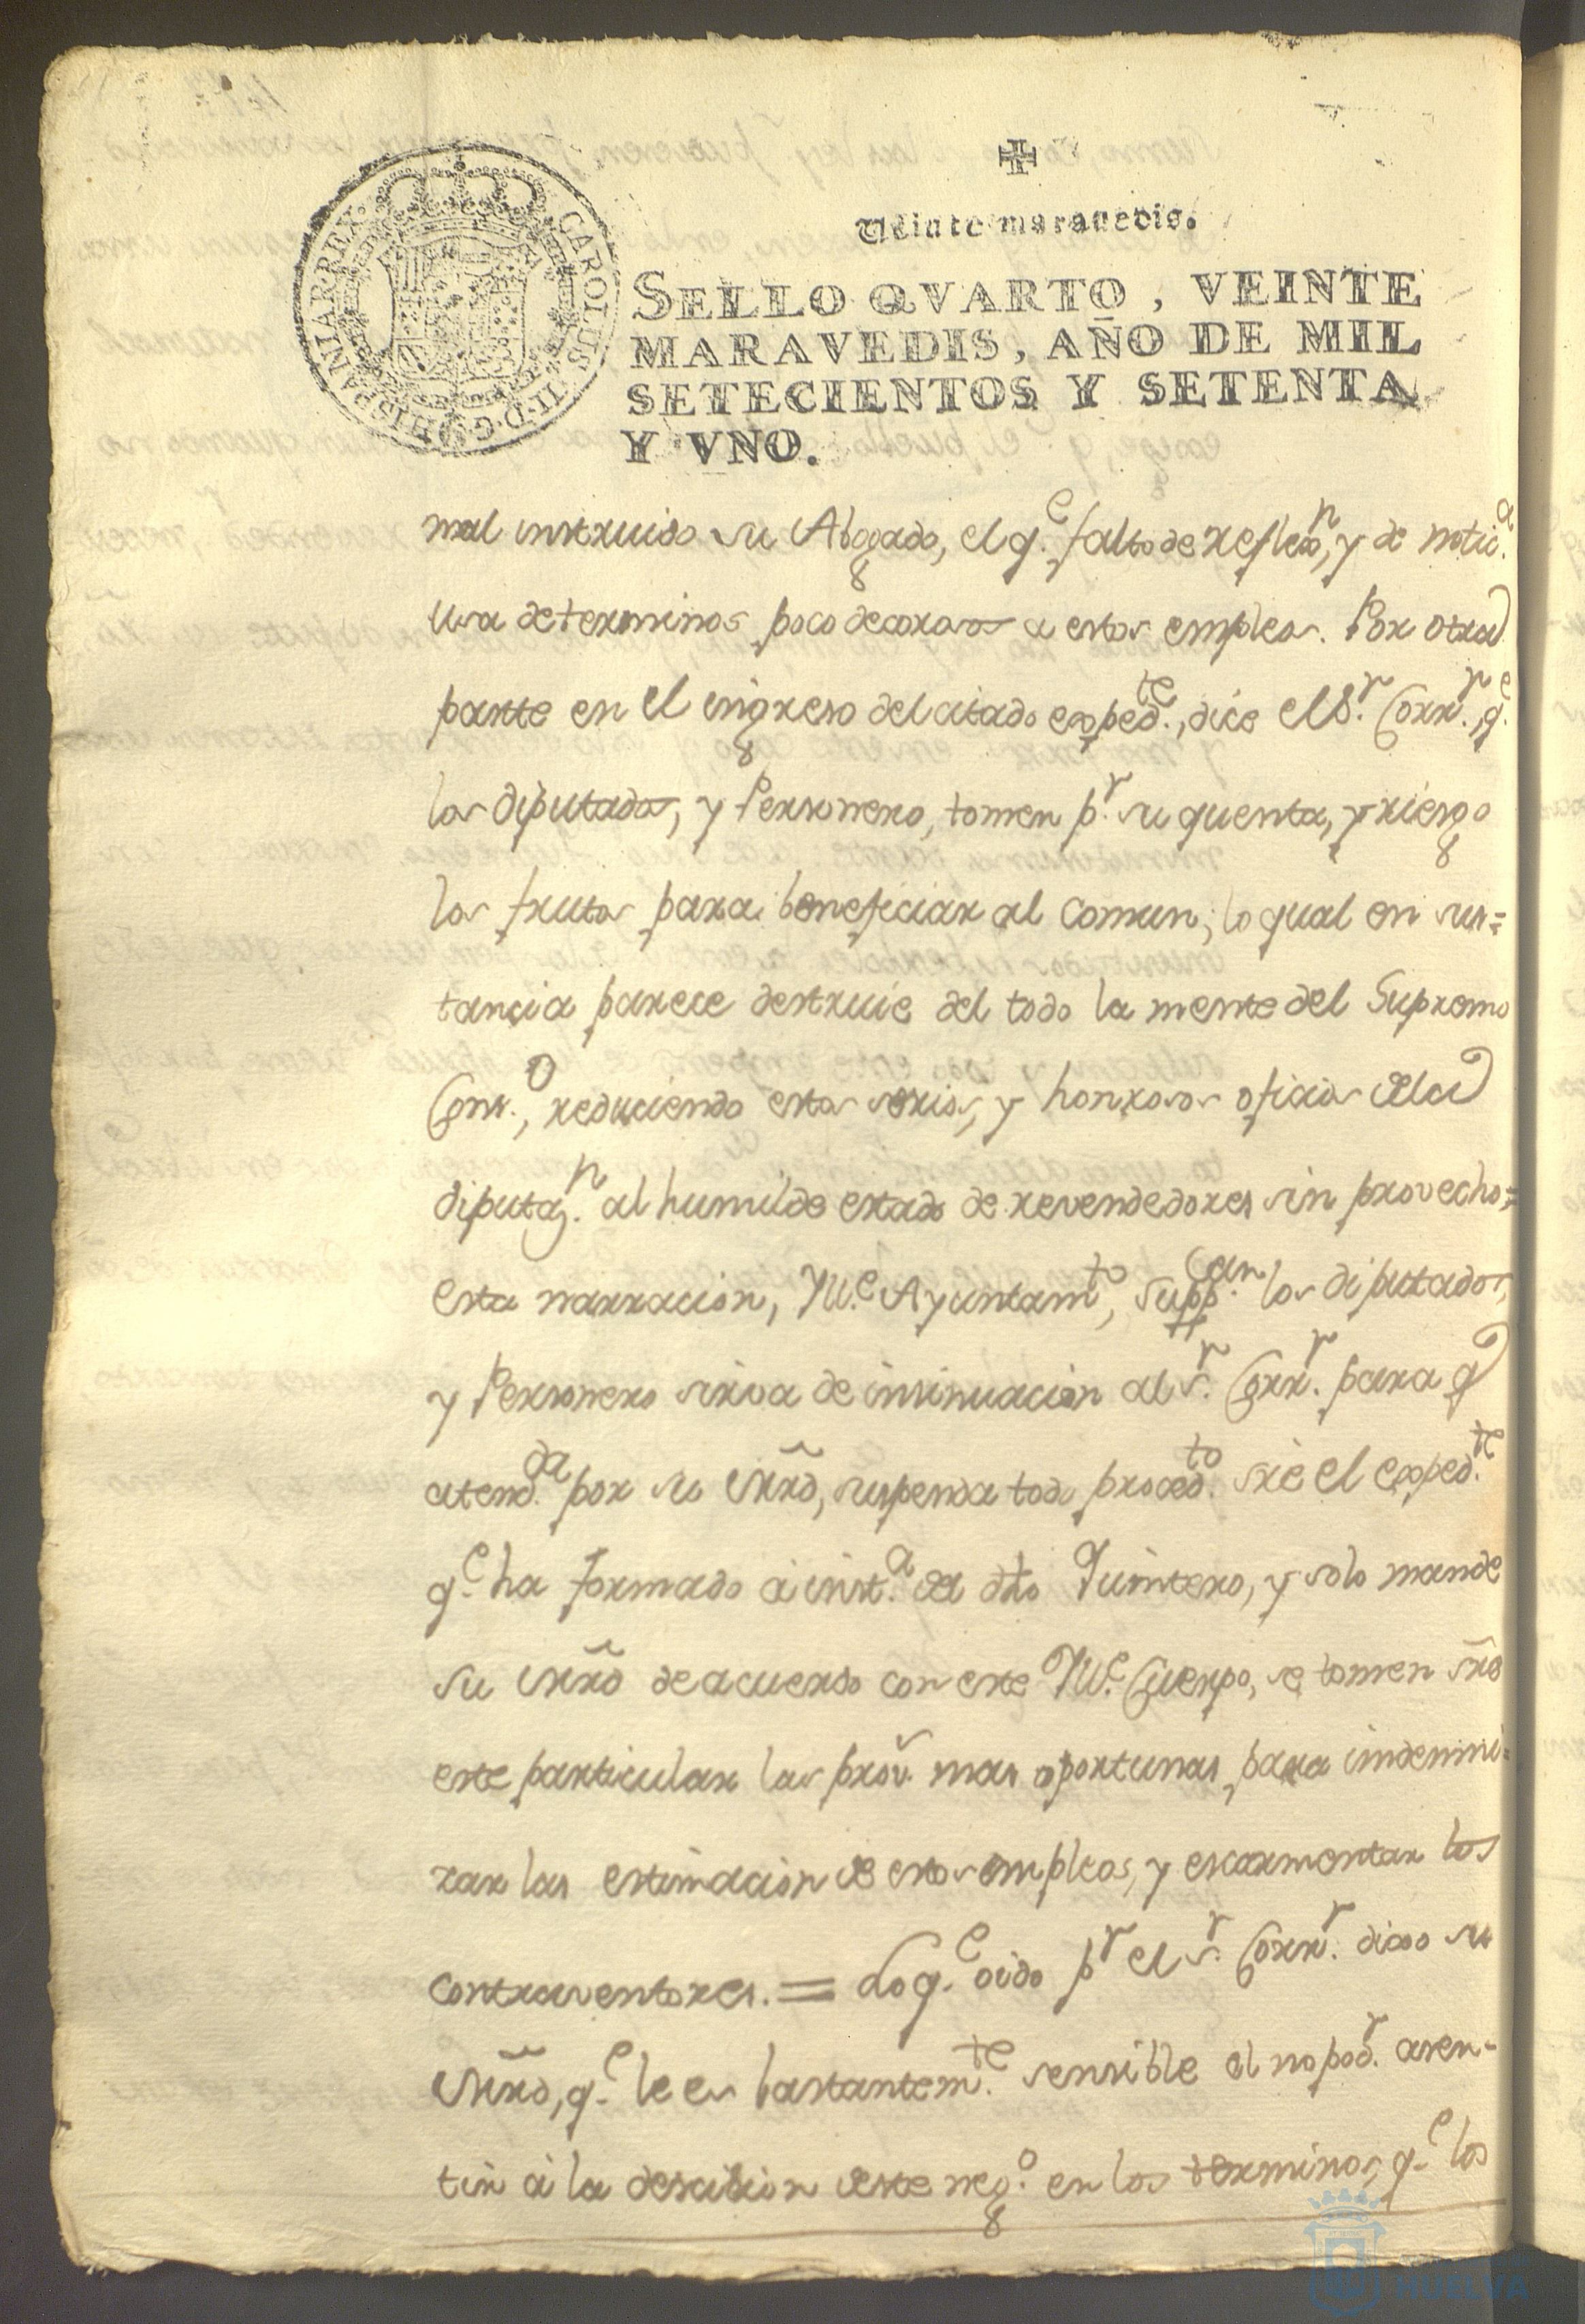 CAROLUS III·D·G·HISPANIAR REX·
Veinte maravedis.
SELLO QVARTO, VEINTE
MARAVEDIS, AÑO DE MIL
SETECIENTOS Y SETENTA
Y VNO.
mal instruido su Abogado, el q.e falto de reflexn, y de notic.a
usa de terminos poco decorosos a estos empleos. Por otra
parte en el ingreso del citado exped.te, dice el S.r Corr.r, q.e
los diputados, y Personero, tomen p.r su quenta, y riesgo
los frutos para beneficiar al Comun; lo qual en sus=
tancia parece destruie del todo la mente del Supremo
Cons.o, reduciendo estos serios, y honrosos oficios dela
diputaz.n al humilde estado de revendedores sin provecho=
esta narracion, Ill.e Ayuntam.to, Supp.can los diputados,
y Personero sirva de insinuacion al s.r Corr.r para q
atend.da por su mrd, suspenda todo proced.to sre el exped.te
q.e ha formado a inst.a de dho Quintero, y solo mande
su mrd de acuerdo con este Ill.e Cuerpo, se tomen sre
este particular las prov. mas oportunas, para indemni=
zar las estimacion de estos empleos, y escarmentar los
contraventores. = Lo q.e oido p.r el s.r Corr.r dixo su
mrd, q.e le es bastantem.te sensible el no pod.r asen-
tir á la descision deste neg.o en los terminos, q.e los
HUELVA